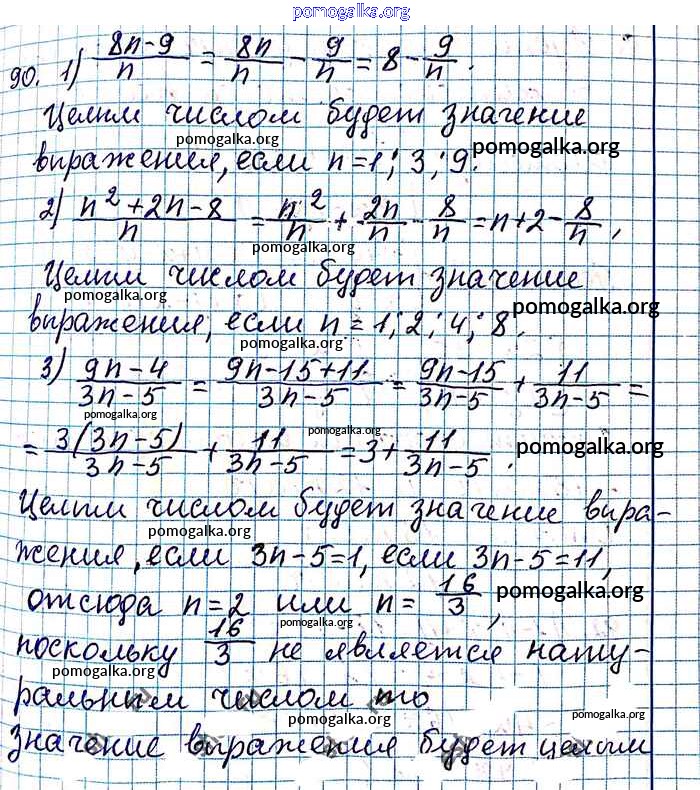 pomogalka.org
90. 1) \frac{8n-9}{n} = \frac{8n}{n} - \frac{9}{n} = 8 - \frac{9}{n}.
Целым числом будет значение
pomogalka.org
выражения, если n=1; 3; 9.
pomogalka.org
2) \frac{n^2+2n-8}{n} = \frac{n^2}{n} + \frac{2n}{n} - \frac{8}{n} = n+2-\frac{8}{n},
pomogalka.org
Целым числом будет значение
pomogalka.org
выражения, если n=1; 2; 4; 8.
pomogalka.org
pomogalka.org
3) \frac{9n-4}{3n-5} = \frac{9n-15+11}{3n-5} = \frac{9n-15}{3n-5} + \frac{11}{3n-5} =
pomogalka.org
= \frac{3(3n-5)}{3n-5} + \frac{11}{3n-5} = 3 + \frac{11}{3n-5}.
pomogalka.org
Целым числом будет значение выра-
pomogalka.org
жения, если 3n-5=1, если 3n-5=11,
отсюда n=2 или n=\frac{16}{3},
pomogalka.org
pomogalka.org
поскольку \frac{16}{3} не является нату-
pomogalka.org
ральным числом то
pomogalka.org
pomogalka.org
значение выражения будет целым